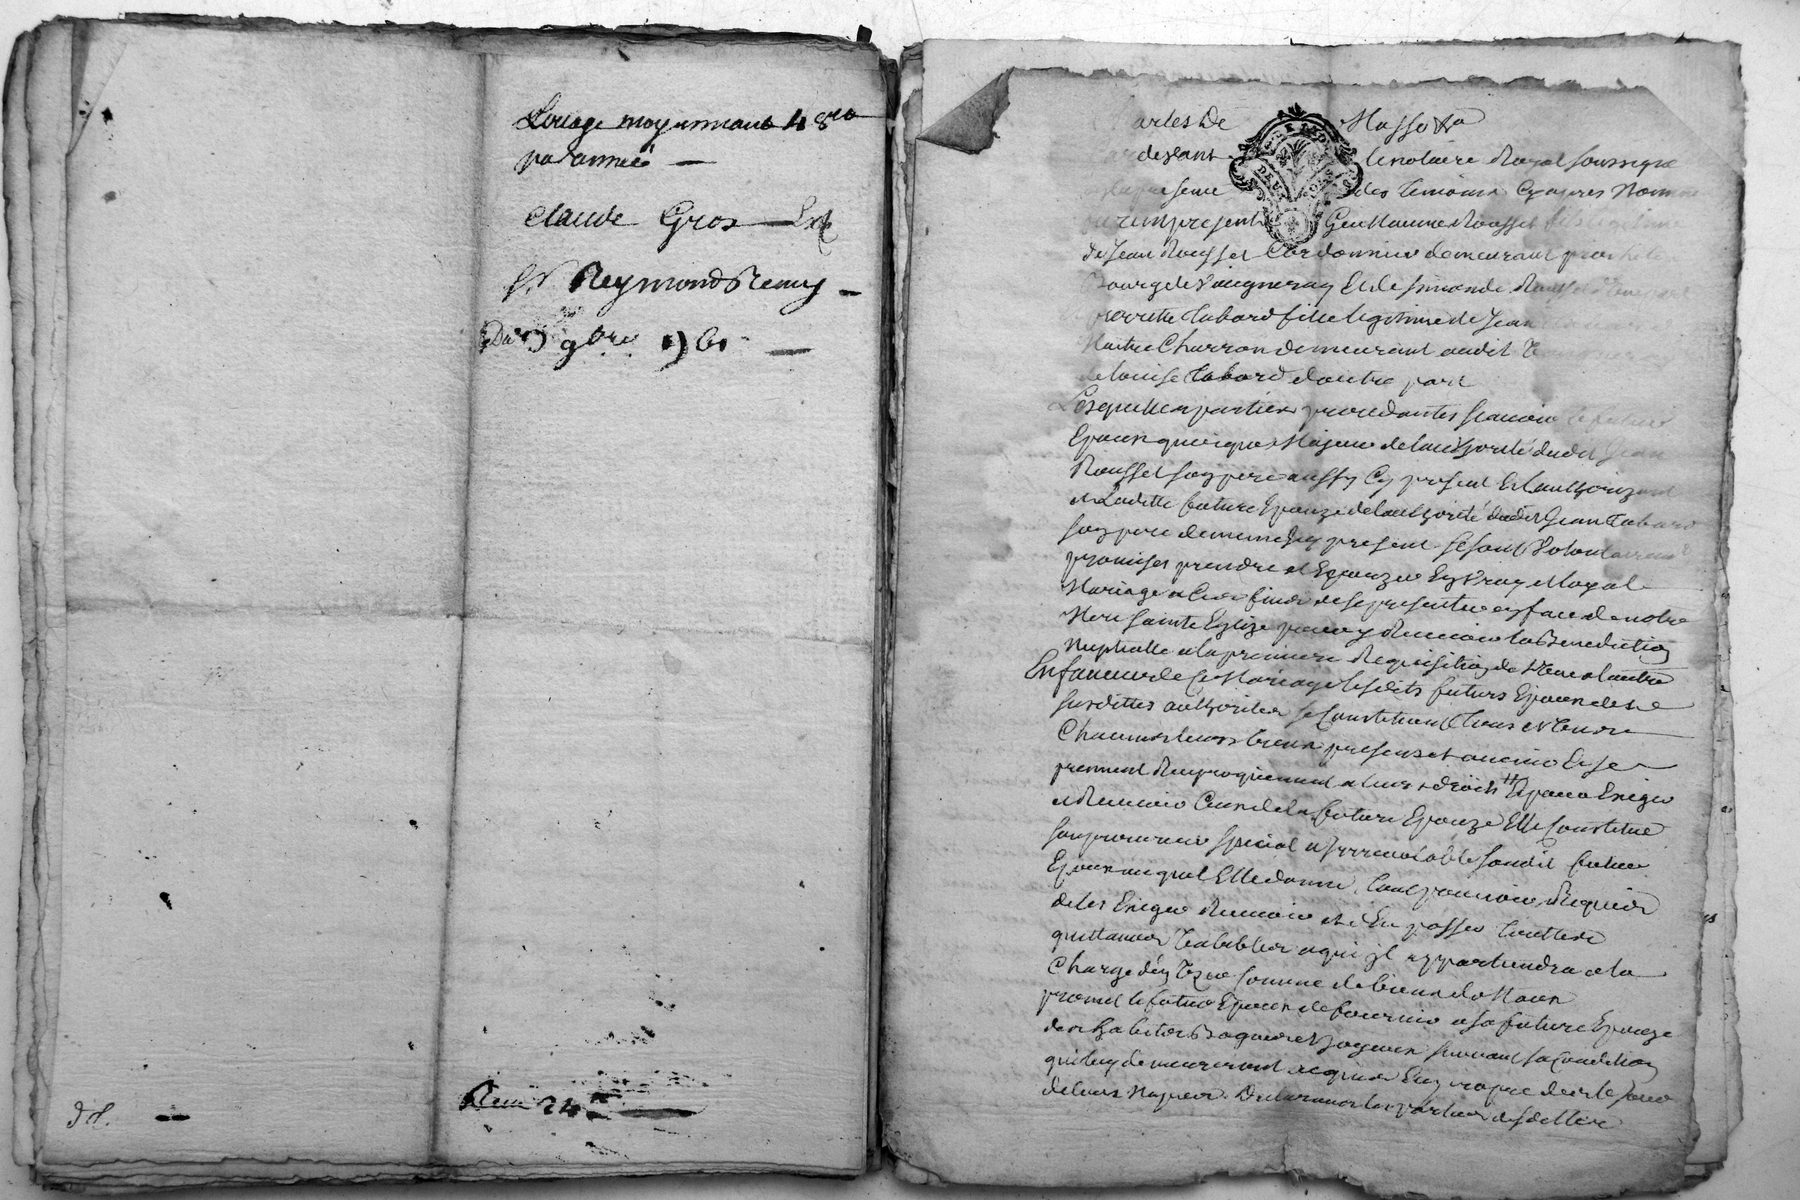 Louage moyennant 48ᵗᵗ
par année —
Claude Gros
Sʳ Reymond Remy —
Du 9bre 1761 —
Reçu 24ˢ —
Par devant le notaire Royal soussigné
presence des temoins cy apres Nommés
furent present Guillaume Rousset fils legitime
de Jean Rousset Cordonnier demeurant
Bourg de Vaugneray et de simonde Rousset d'une part
pierrette Tabard fille legitime de Jean
Maitre Charron demeurant audit
de louise Tabard d'autre part
Lesquelles parties procedantes scavoir le futur
Epoux quoique Majeur de l'authorité dudit Jean
Rousset son pere aussy Cy present et l'authorizant
et Laditte future Epouze de l'authorité dudit Jean Tabard
son pere de meme icy present se sont Volontairement
promises prendre et Epouzer En Vray et loyal
Mariage a Ces fins de se presenter en face de notre
Mere sainte Eglize pour y Recevoir la Benediction
Nuptialle a la premiere Requisition de l'une et l'autre
En faveur de Ce Mariage lesdits futurs Epoux desd
susdittes authorites se Constituent tous et tems
Chacuns leurs biens presens et avenir Et se
prennent Reciproquement a leurs droits Et pour Exiger
et Recevoir Ceux de la future Epouze Elle Constitue
son procureur special et Irrevocable sondit futur
Epoux auquel Elle donne tout pouvoir Requis
de les Exiger Recevoir et d'En passer touttes
quittances Valables a qui il appartiendra a la
Charge d'en
promet le futur Epoux de fournir a sa future Epouze
des habits Bagues et joyaux suivant sa Condition
qui luy demeureront acquis En propre des le jour
de leurs Noces. Declarants les parties